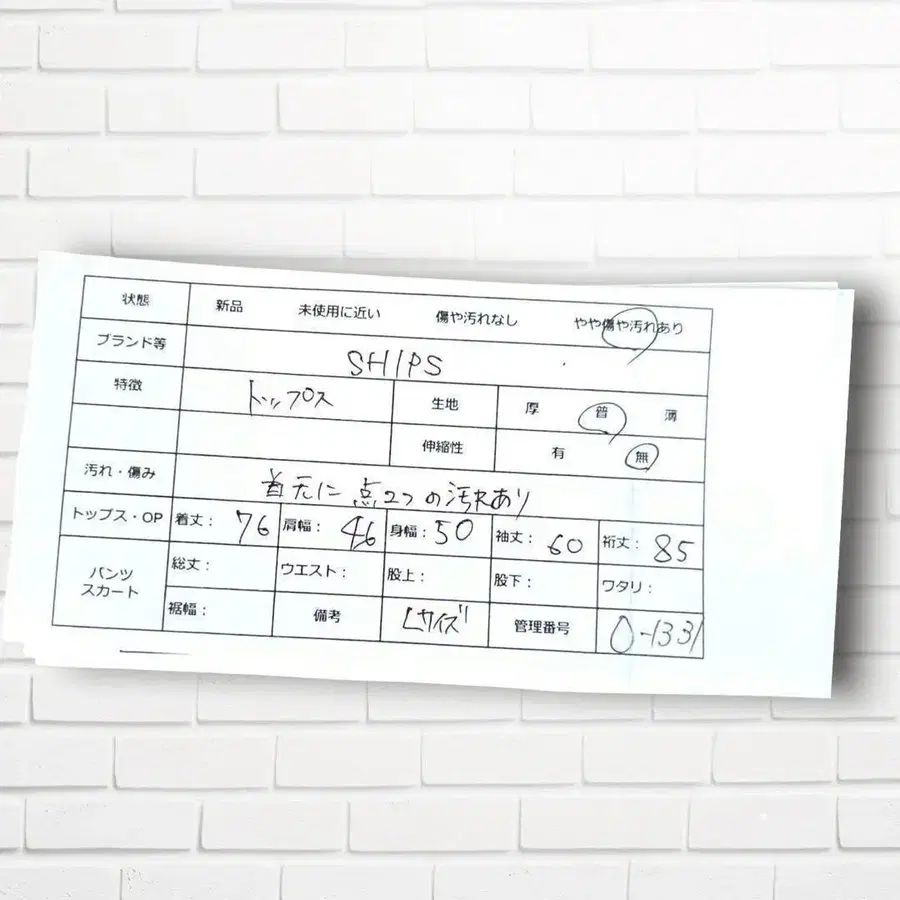 状態 新品 未使用に近い 傷や汚れなし やや傷や汚れあり
ブランド等 SHIPS
特徴 トップス 生地 厚 普 薄
伸縮性 有 無
汚れ・傷み 首元に点2つの汚れあり
トップス・OP 着丈: 76 肩幅: 46 身幅: 50 袖丈: 60 裄丈: 85
パンツ スカート 総丈: ウエスト: 股上: 股下: ワタリ:
裾幅: 備考 Lサイズ 管理番号 0-1331